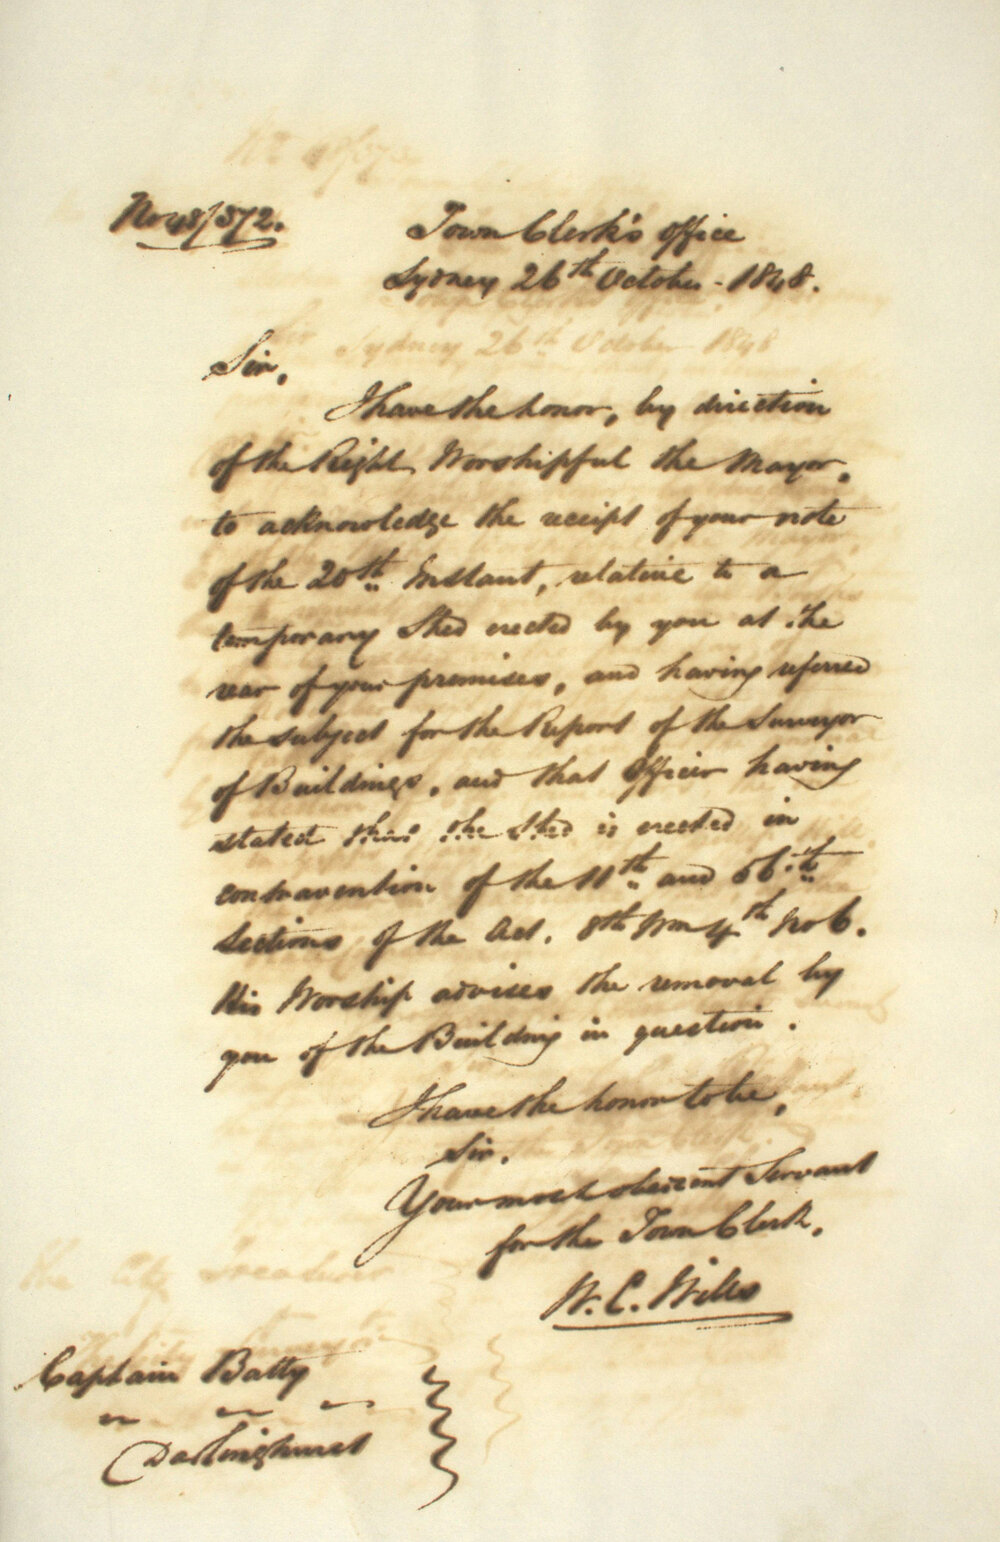 No 48/372.
Town Clerk's Office
Sydney 26th October - 1848.
Sir,
I have the honor, by direction
of the Right Worshipful the Mayor,
to acknowledge the receipt of your note
of the 20th Instant, relative to a
temporary Shed erected by you at the
rear of your premises, and having referred
the subject for the Report of the Surveyor
of Buildings, and that Officer having
stated that the Shed is erected in
contravention of the 11th and 56th
Sections of the Act. 8th Wm 4th No 6.
His Worship advises the removal by
you of the Building in question.
I have the honor to be,
Sir.
Your most obedient Servant
for the Town Clerk,
W. C. Wills
Captain Batty
Darlinghurst
Sydney 26th October 1848
the City Treasurer